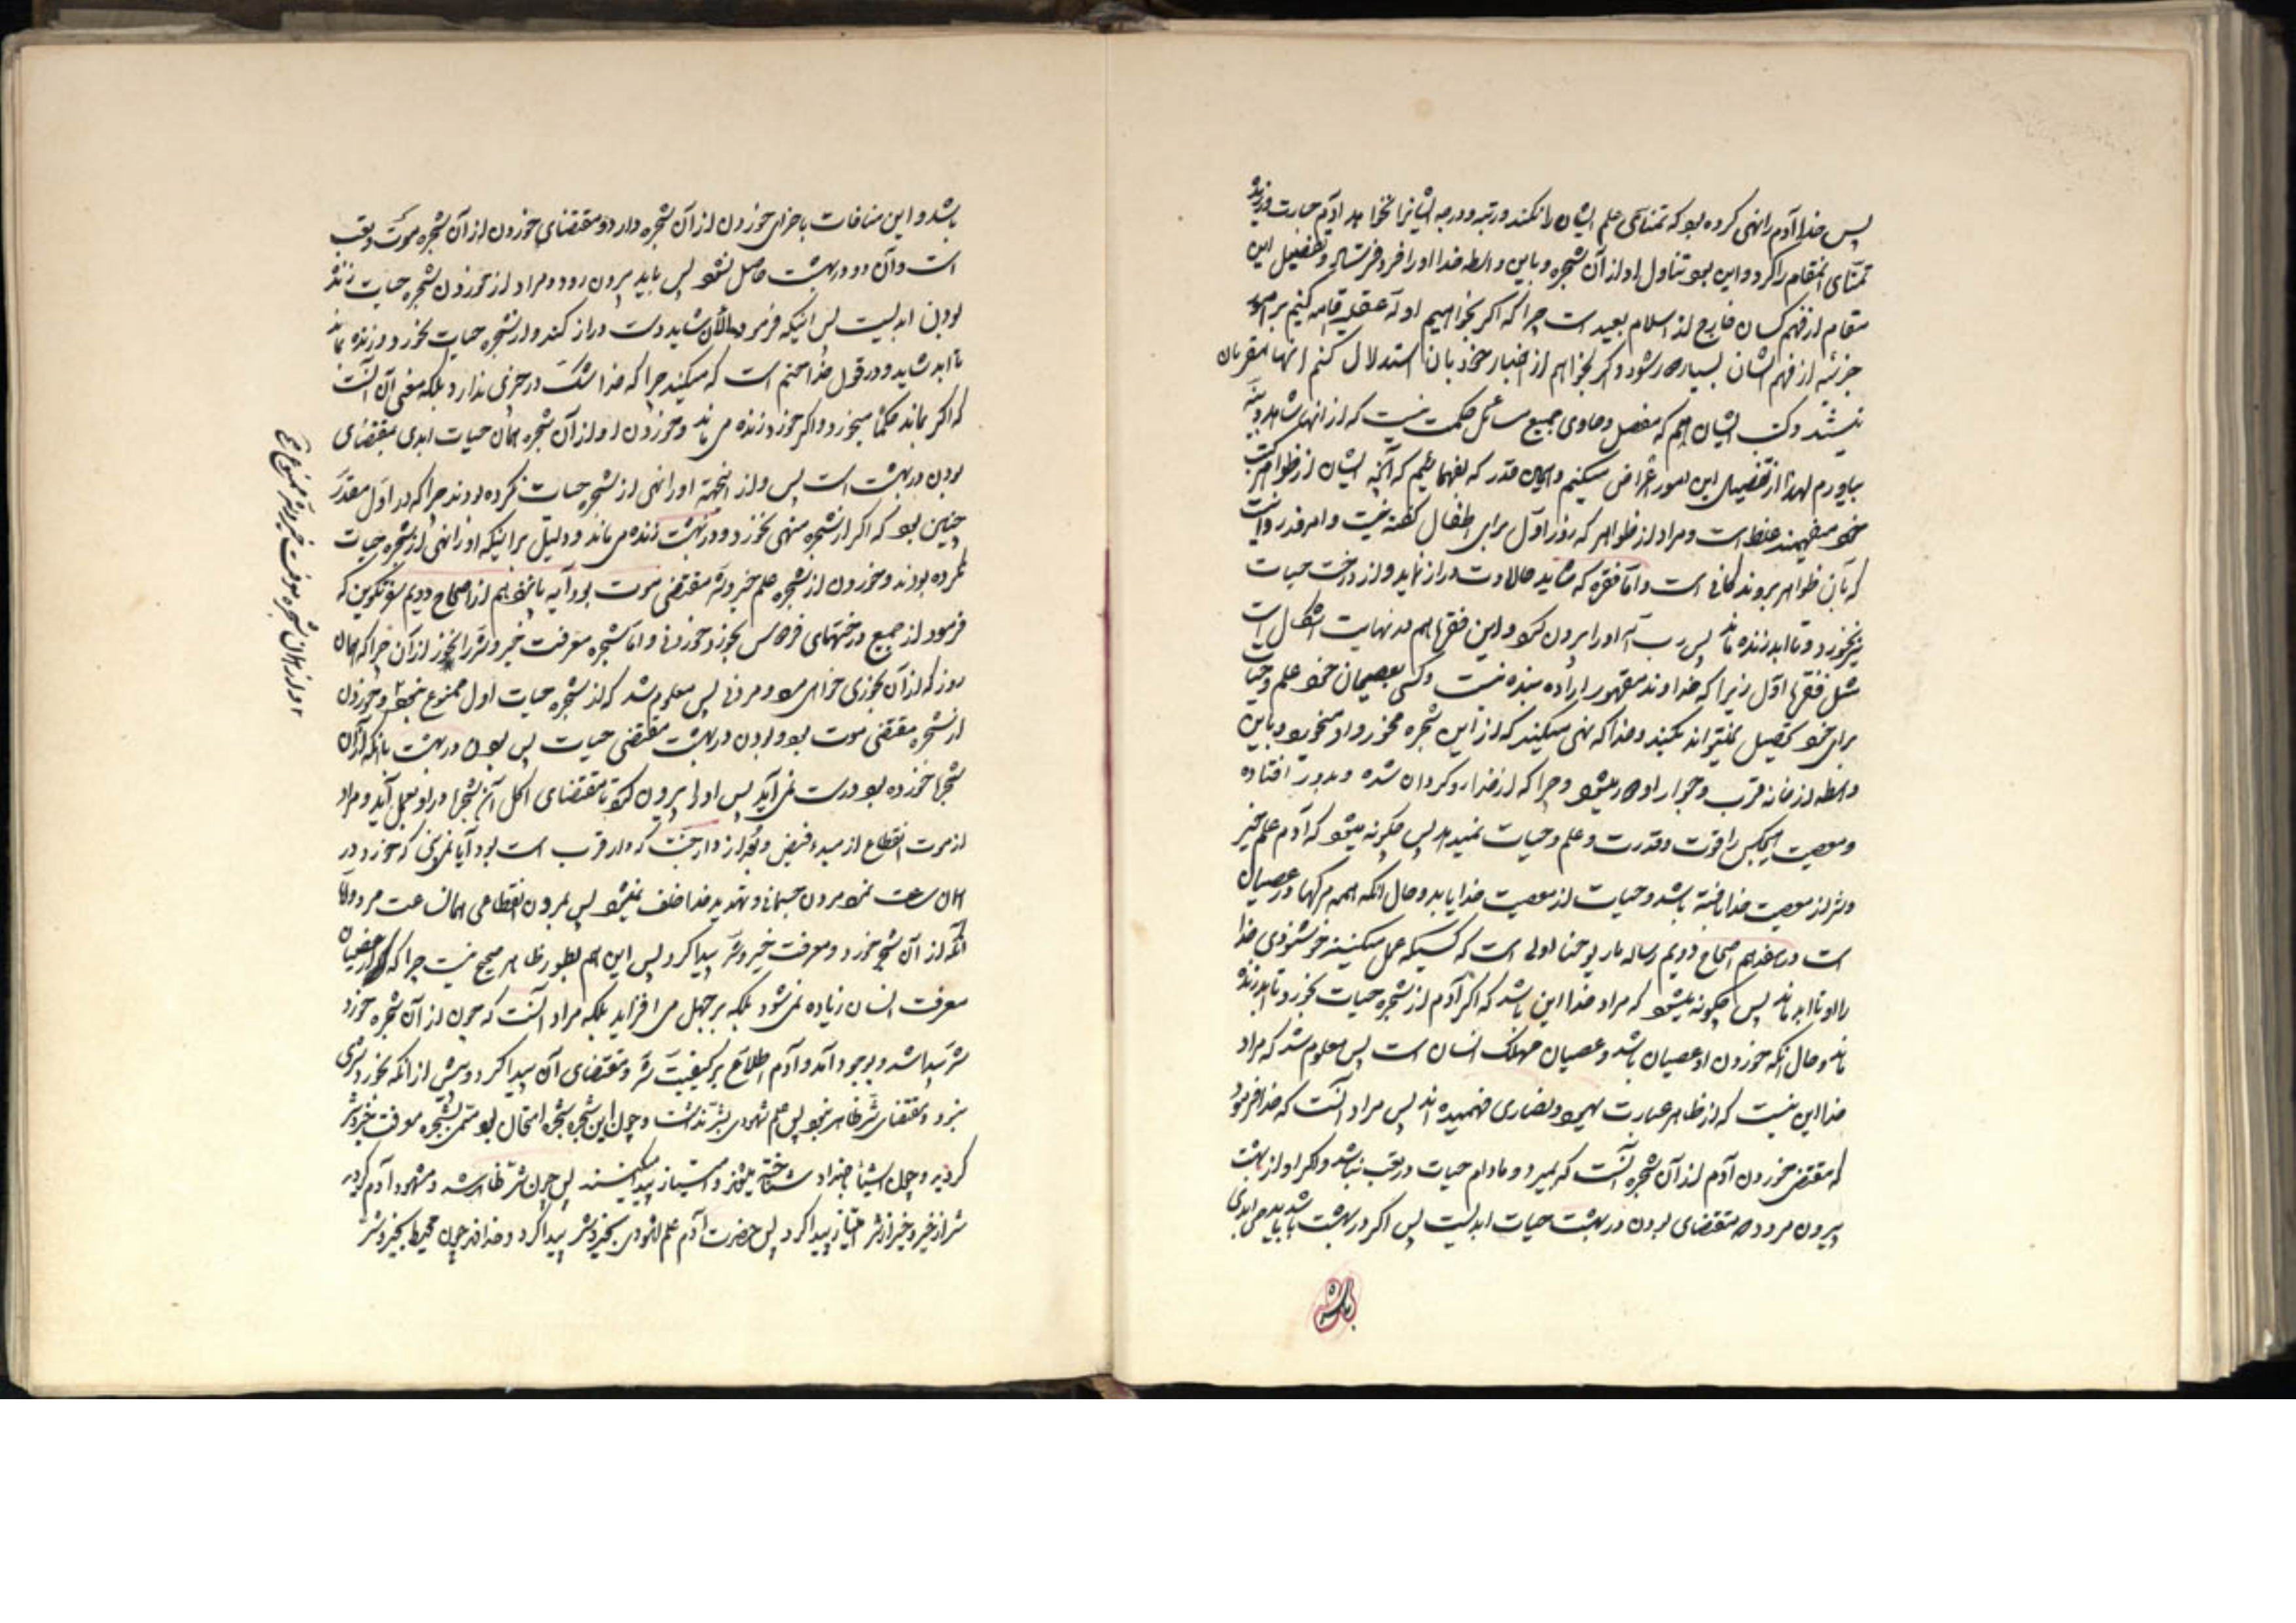 پس خدا آدم را نهی کرده بود که تمنای علم ایشان را نکند و رتبه و درجه ایشانرا نخواهد آدم جسارت ورزید
تمنای آنمقام را کرد و این بود تناول او از آن شجره و باین واسطه خدا او را فرو فرستاد و تفصیل این
مقام از فهم کسان خارج از اسلام بعید است چرا که اگر بخواهیم ادله عقلیه اقامه کنیم بر امور
جزئیه از فهم ایشان بسیار دور شود و اگر بخواهم از اخبار خود بآن استدلال کنم اینها مقر بآن
نیستند و کتب ایشان هم که مفصل و حاوی جمیع مسائل حکمت نیست که از آنها شاهد و بینه
بیاورم لهذا از تفصیل این امور اعراض میکنیم و همین قدر که بفهمانیم که آنچه ایشان از ظواهر کتب
خود میفهمند غلط است و مراد از ظواهر که روز اول برای اطفال گفته نیست و امروز روا نیست
که بآن ظواهر بروند کافی است و اما فقره که شاید حالا دست دراز نماید و از درخت حیات
نیز بخورد و تا ابد زنده ماند پس رب اله او را بیرون کرد و این فقره هم در نهایت اشکال است
مثل فقره اول زیرا که خداوند مقهور اراده بنده نیست و کسی بعصیان خود علم و حیات
برای خود تحصیل نمیتواند بکند و خدا که نهی میکند که از این شجره مخور و او میخورد باین
واسطه از خانه قرب و جوار او دور میشود و چرا که از خدا رو گردان شده و بدور افتاده
و معصیت هیچکس را قوت و قدرت و علم و حیات نمیدهد پس چگونه میشود که آدم علم خیر
و شر از معصیت خدا یافته باشد و حیات از معصیت خدا یابد و حال آنکه همه مرگها در عصیان
است در هفدهم اصحاح دویم رساله مار یوحنا اولی است که کسیکه عمل میکند بخوشنودی خدا
را او تا ابد ماند پس چگونه میشود که مراد خدا این باشد که اگر آدم از شجره حیات بخورد تا ابد زنده
ماند و حال آنکه خوردن او عصیان باشد و عصیان مهلک انسان است پس معلوم شد که مراد
خدا این نیست که از ظاهر عبارت یهود و نصاری فهمیده اند پس مراد آنست که خدا فرمود
که مقتضی خوردن آدم از آن شجره آنست که بمیرد و مادام حیات در تعب باشد و اگر او از بهشت
بیرون نرود مقتضای بودن در بهشت حیات ابدیست پس اگر در بهشت باشد باید حی ابدی
باشد
باشد و این منافات با جزای خوردن از آن شجره دارد و مقتضای خوردن از آن شجره موت و تعب
است و آن دو در بهشت حاصل نشود پس باید بیرون رود و مراد از خوردن شجره حیات زنده
بودن ابدیست پس اینکه فرمود والآن شاید دست دراز کند و از شجره حیات بخورد و زنده بماند
تا ابد شاید در قول خدا حتم است که میکند چرا که خدا شک در چیزی ندارد بلکه معنی آن آنست
که اگر بماند حکما میخورد و اگر خورد زنده می ماند و خوردن او از آن شجره همان حیات ابدی بمقتضای
بودن در بهشت است پس و از اینجهة او را نهی از شجره حیات نکرده بودند چرا که در اول مقدر
چنین بود که اگر از شجره منهی نخورد و در بهشت زنده می ماند و دلیل بر اینکه او را نهی از شجره حیات
نکرده بودند و خوردن از شجره علم خیر و شر مقتضی موت بود آیه پانزدهم از اصحاح دویم سفر تکوین که
فرمود از جمیع درختهای فردوس بخور و خوردنی و اما شجره معرفت خیر و شر را نخور از آن چرا که همان
روز که از آن بخوری خواهی مرد مردنی پس معلوم شد که از شجره حیات اول ممنوع نبود و خوردن
از شجره مقتضی موت بود و بودن در بهشت مقتضی حیات پس بودن در بهشت با آنکه از آن
شجره خورده بود درست نمی آید پس او را بیرون کرد تا مقتضای اکل آن شجره در او بعمل آید و مراد
از موت انقطاع از مبدء فیض و بعد از دار جنت که دار قرب است بود آیا نمی بینی که خورد در
همان ساعت نمرد مردن جسمانی و تهدید خدا خلف نمیشود پس بمردن انقطاعی همان ساعت مرد و اما
آنکه از آن شجره خورد و معرفت خیر و شر پیدا کرد پس این هم بطور ظاهر صحیح نیست چرا که از عصیان
معرفت انسان زیاده نمی شود بلکه بر جهل می افزاید بلکه مراد آنست که چون از آن شجره خورد
شر پیدا شد و بوجود آمد و آدم اطلاع بر کیفیت شر و مقتضای آن پیدا کرد و پیش از آنکه بخورد شری
نبود و مقتضای شر ظاهر نبود پس علم شهودی بشر نداشت و چون این شجره شجره امتحان بود مسمی بشجره معرفت خیر و شر
گردید و چون اشیاء باضداد شناخته میشوند و امتیاز پیدا میکنند پس چون شر ظاهر شد و مشهود آدم گردید
شر از خیر و خیر از شر امتیاز پیدا کرد پس حضرت آدم علم شهودی بخیر و شر پیدا کرد و خداوند چون محیط بخیر و شر
و از همان شجره معرفت خیر و شر ممنوع بود